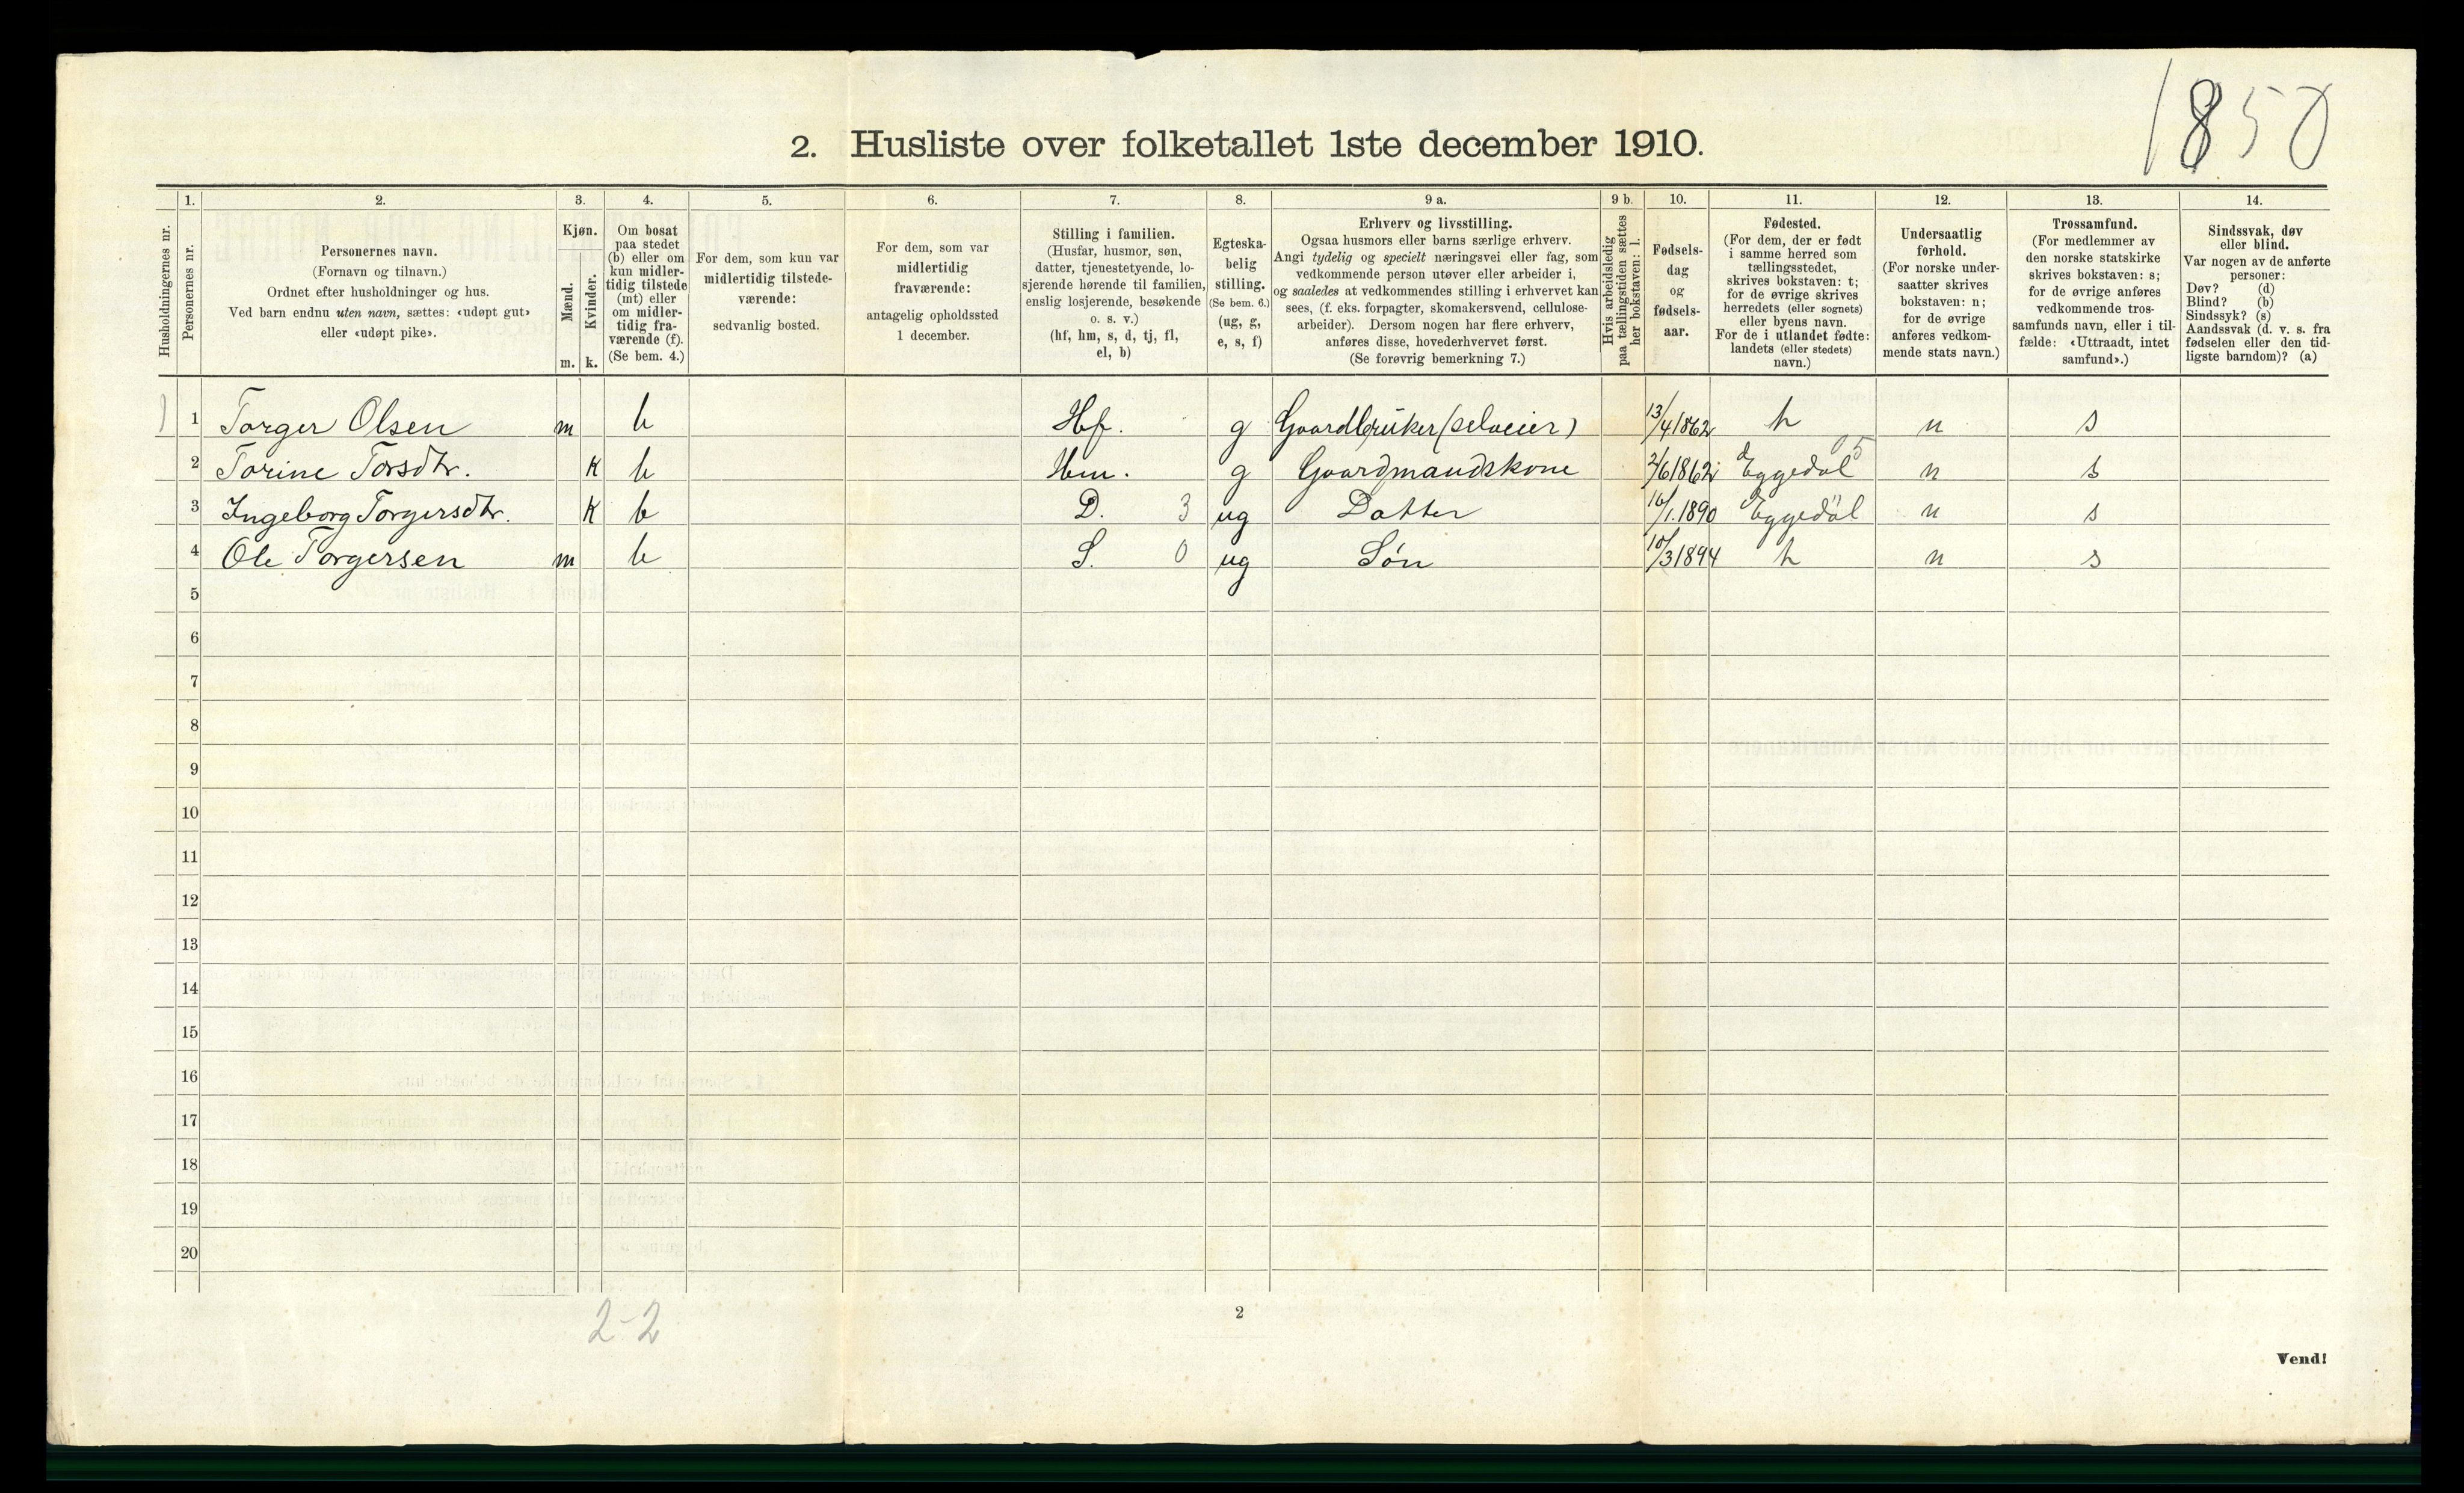 1850
2. Husliste over folketallet 1ste december 1910.
1. 2. 3. 4. 5. 6. 7. 8. 9 a. 9 b. 10. 11. 12. 13. 14.
Husholdningernes nr.
Personernes nr.
Personernes navn.
(Fornavn og tilnavn.)
Ordnet efter husholdninger og hus.
Ved barn endnu uten navn, sættes: «udøpt gut»
eller «udøpt pike».
Kjøn.
Mænd.
Kvinder.
m. k.
Om bosat
paa stedet
(b) eller om
kun midler-
tidig tilstede
(mt) eller
om midler-
tidig fra-
værende (f).
(Se bem. 4.)
For dem, som kun var
midlertidig tilstede-
værende:
sedvanlig bosted.
For dem, som var
midlertidig
fraværende:
antagelig opholdssted
1 december.
Stilling i familien.
(Husfar, husmor, søn,
datter, tjenestetyende, lo-
sjerende hørende til familien,
enslig losjerende, besøkende
o. s. v.)
(hf, hm, s, d, tj, fl,
el, b)
Egteska-
belig
stilling.
(Se bem. 6.)
(ug, g,
e, s, f)
Erhverv og livsstilling.
Ogsaa husmors eller barns særlige erhverv.
Angi tydelig og specielt næringsvei eller fag, som
vedkommende person utøver eller arbeider i,
og saaledes at vedkommendes stilling i erhvervet kan
sees, (f. eks. forpagter, skomakersvend, cellulose-
arbeider). Dersom nogen har flere erhverv,
anføres disse, hovederhvervet først.
(Se forøvrig bemerkning 7.)
Hvis arbeidsledig
paa tællingstiden sættes
her bokstaven: l.
Fødsels-
dag
og
fødsels-
aar.
Fødested.
(For dem, der er født
i samme herred som
tællingsstedet,
skrives bokstaven: t;
for de øvrige skrives
herredets (eller sognets)
eller byens navn.
For de i utlandet fødte:
landets (eller stedets)
navn.)
Undersaatlig
forhold.
(For norske under-
saatter skrives
bokstaven: n;
for de øvrige
anføres vedkom-
mende stats navn.)
Trossamfund.
(For medlemmer av
den norske statskirke
skrives bokstaven: s;
for de øvrige anføres
vedkommende tros-
samfunds navn, eller i til-
fælde: «Uttraadt, intet
samfund».)
Sindssvak, døv
eller blind.
Var nogen av de anførte
personer:
Døv? (d)
Blind? (b)
Sindssyk? (s)
Aandssvak (d. v. s. fra
fødselen eller den tid-
ligste barndom)? (a)
1 Torger Olsen m b Hf. g Gaardbruker (selveier) 13/4 1862 t n s
2 Torine Torsdtr. K b Hm. g Gaardmandskone 2/6 1862 Eggedal n s
3 Ingeborg Torgersdtr. K b D. 3 ug Datter 16/1.1890 Eggedal n s
4 Ole Torgersen m b S. 0 ug Søn 10/3 1894 t n s
5
6
7
8
9
10
11
12
13
14
15
16
17
18
19
20
2-2
2
Vend!